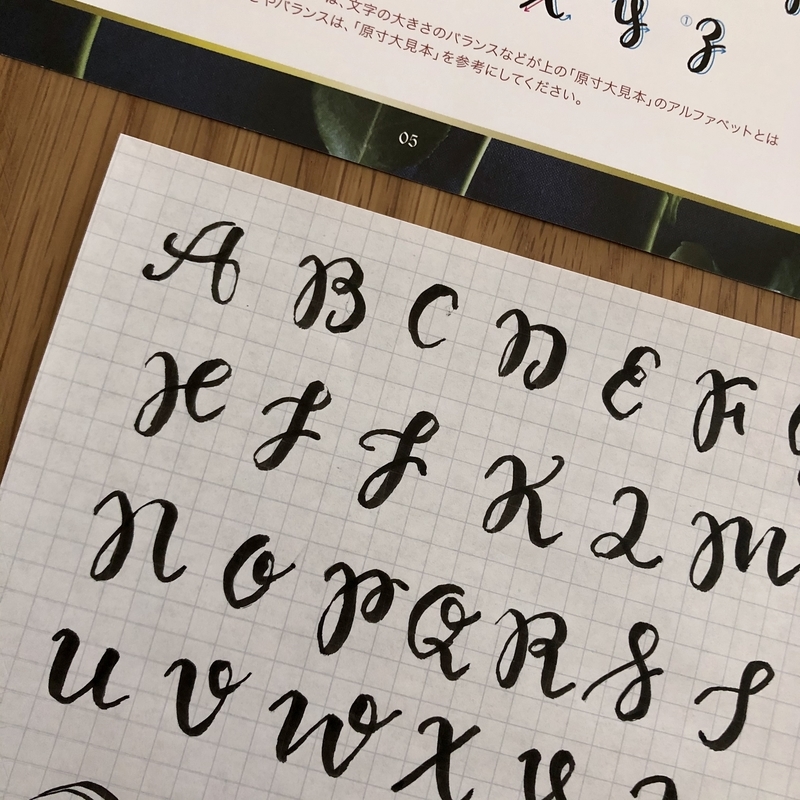 x y ① z
は、文字の大きさのバランスなどが上の「原寸大見本」のアルファベットとは
やバランスは、「原寸大見本」を参考にしてください。
05
A B C D E F
H I J K L M
N O P Q R S T
U V W X Y Z